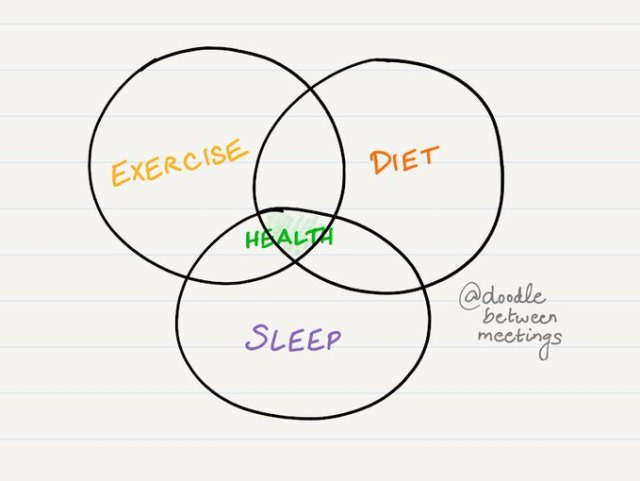 EXERCISE
DIET
HEALTH
SLEEP
@doodle
between
meetings